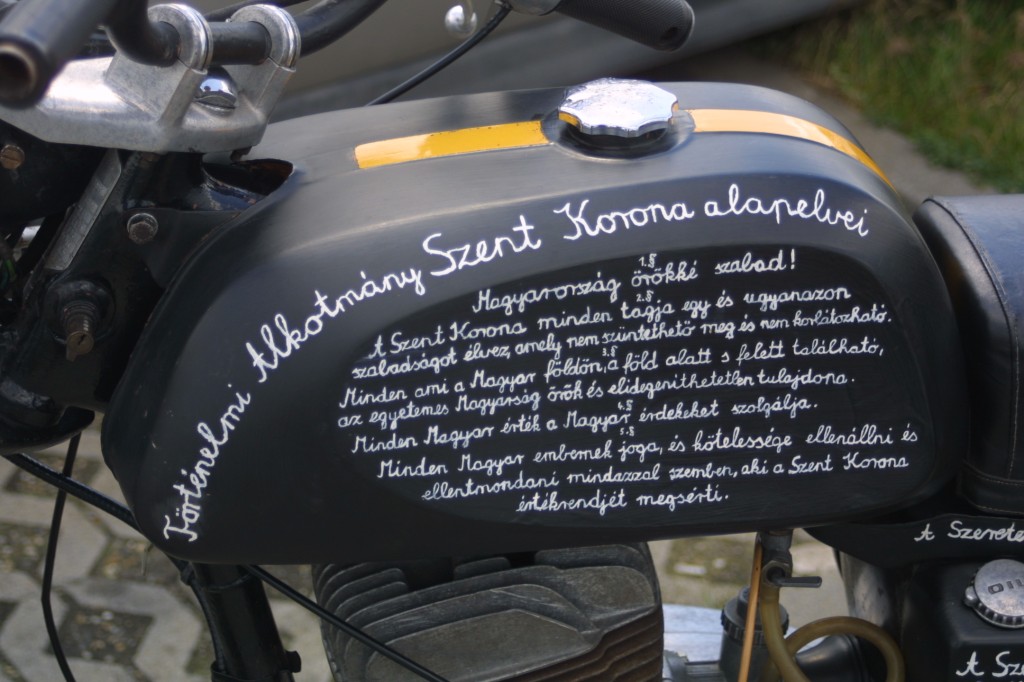 Történelmi Alkotmány Szent Korona alapelvei
1.§
Magyarország örökké szabad!
2.§
A Szent Korona minden tagja egy és ugyanazon
szabadságot élvez, amely nem szüntethető meg és nem korlátozható.
3.§
Minden ami a Magyar földön, a föld alatt s felett található,
az egyetemes Magyarság örök és elidegeníthetetlen tulajdona.
4.§
Minden Magyar érték a Magyar érdekeket szolgálja.
5.§
Minden Magyar embernek joga, és kötelessége ellenállni és
ellentmondani mindazzal szemben, aki a Szent Korona
értékrendjét megsérti.
A Szerete
OIL
A Sze